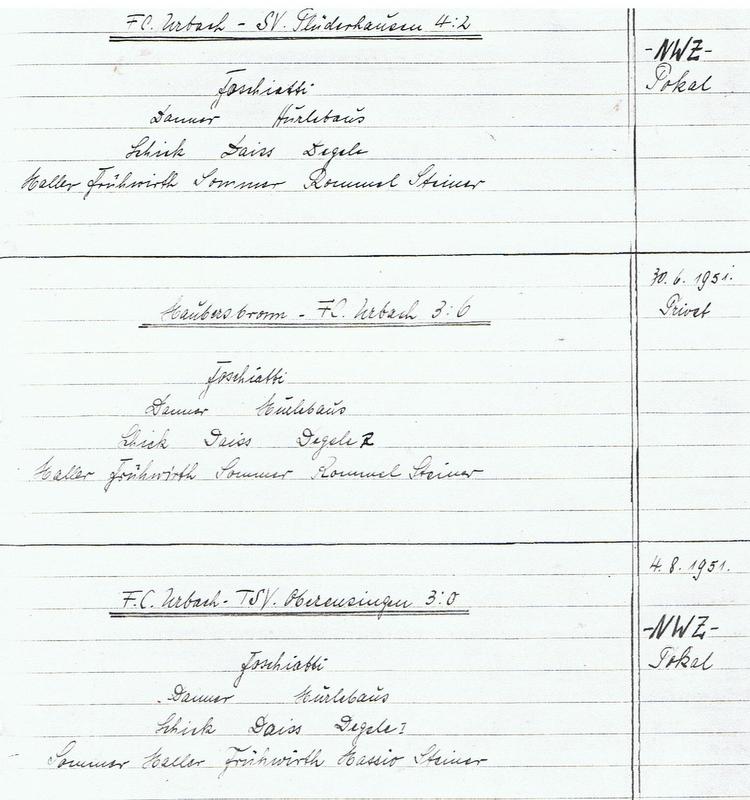 F.C. Urbach - SV. Plüderhausen 4:2
-NWZ-
Pokal
Foschiatti
Danner Hürlebaus
Schick Daiss Degele
Haller Frühwirth Sommer Rommel Steiner
30. 6. 1951.
Privat
Haubersbronn - F.C. Urbach 3:6
Foschiatti
Danner Hürlebaus
Schick Daiss Degele 2
Haller Frühwirth Sommer Rommel Steiner
4. 8. 1951.
F.C. Urbach - TSV. Oberensingen 3:0
-NWZ-
Pokal
Foschiatti
Danner Hürlebaus
Schick Daiss Degele I
Sommer Haller Frühwirth Steiner